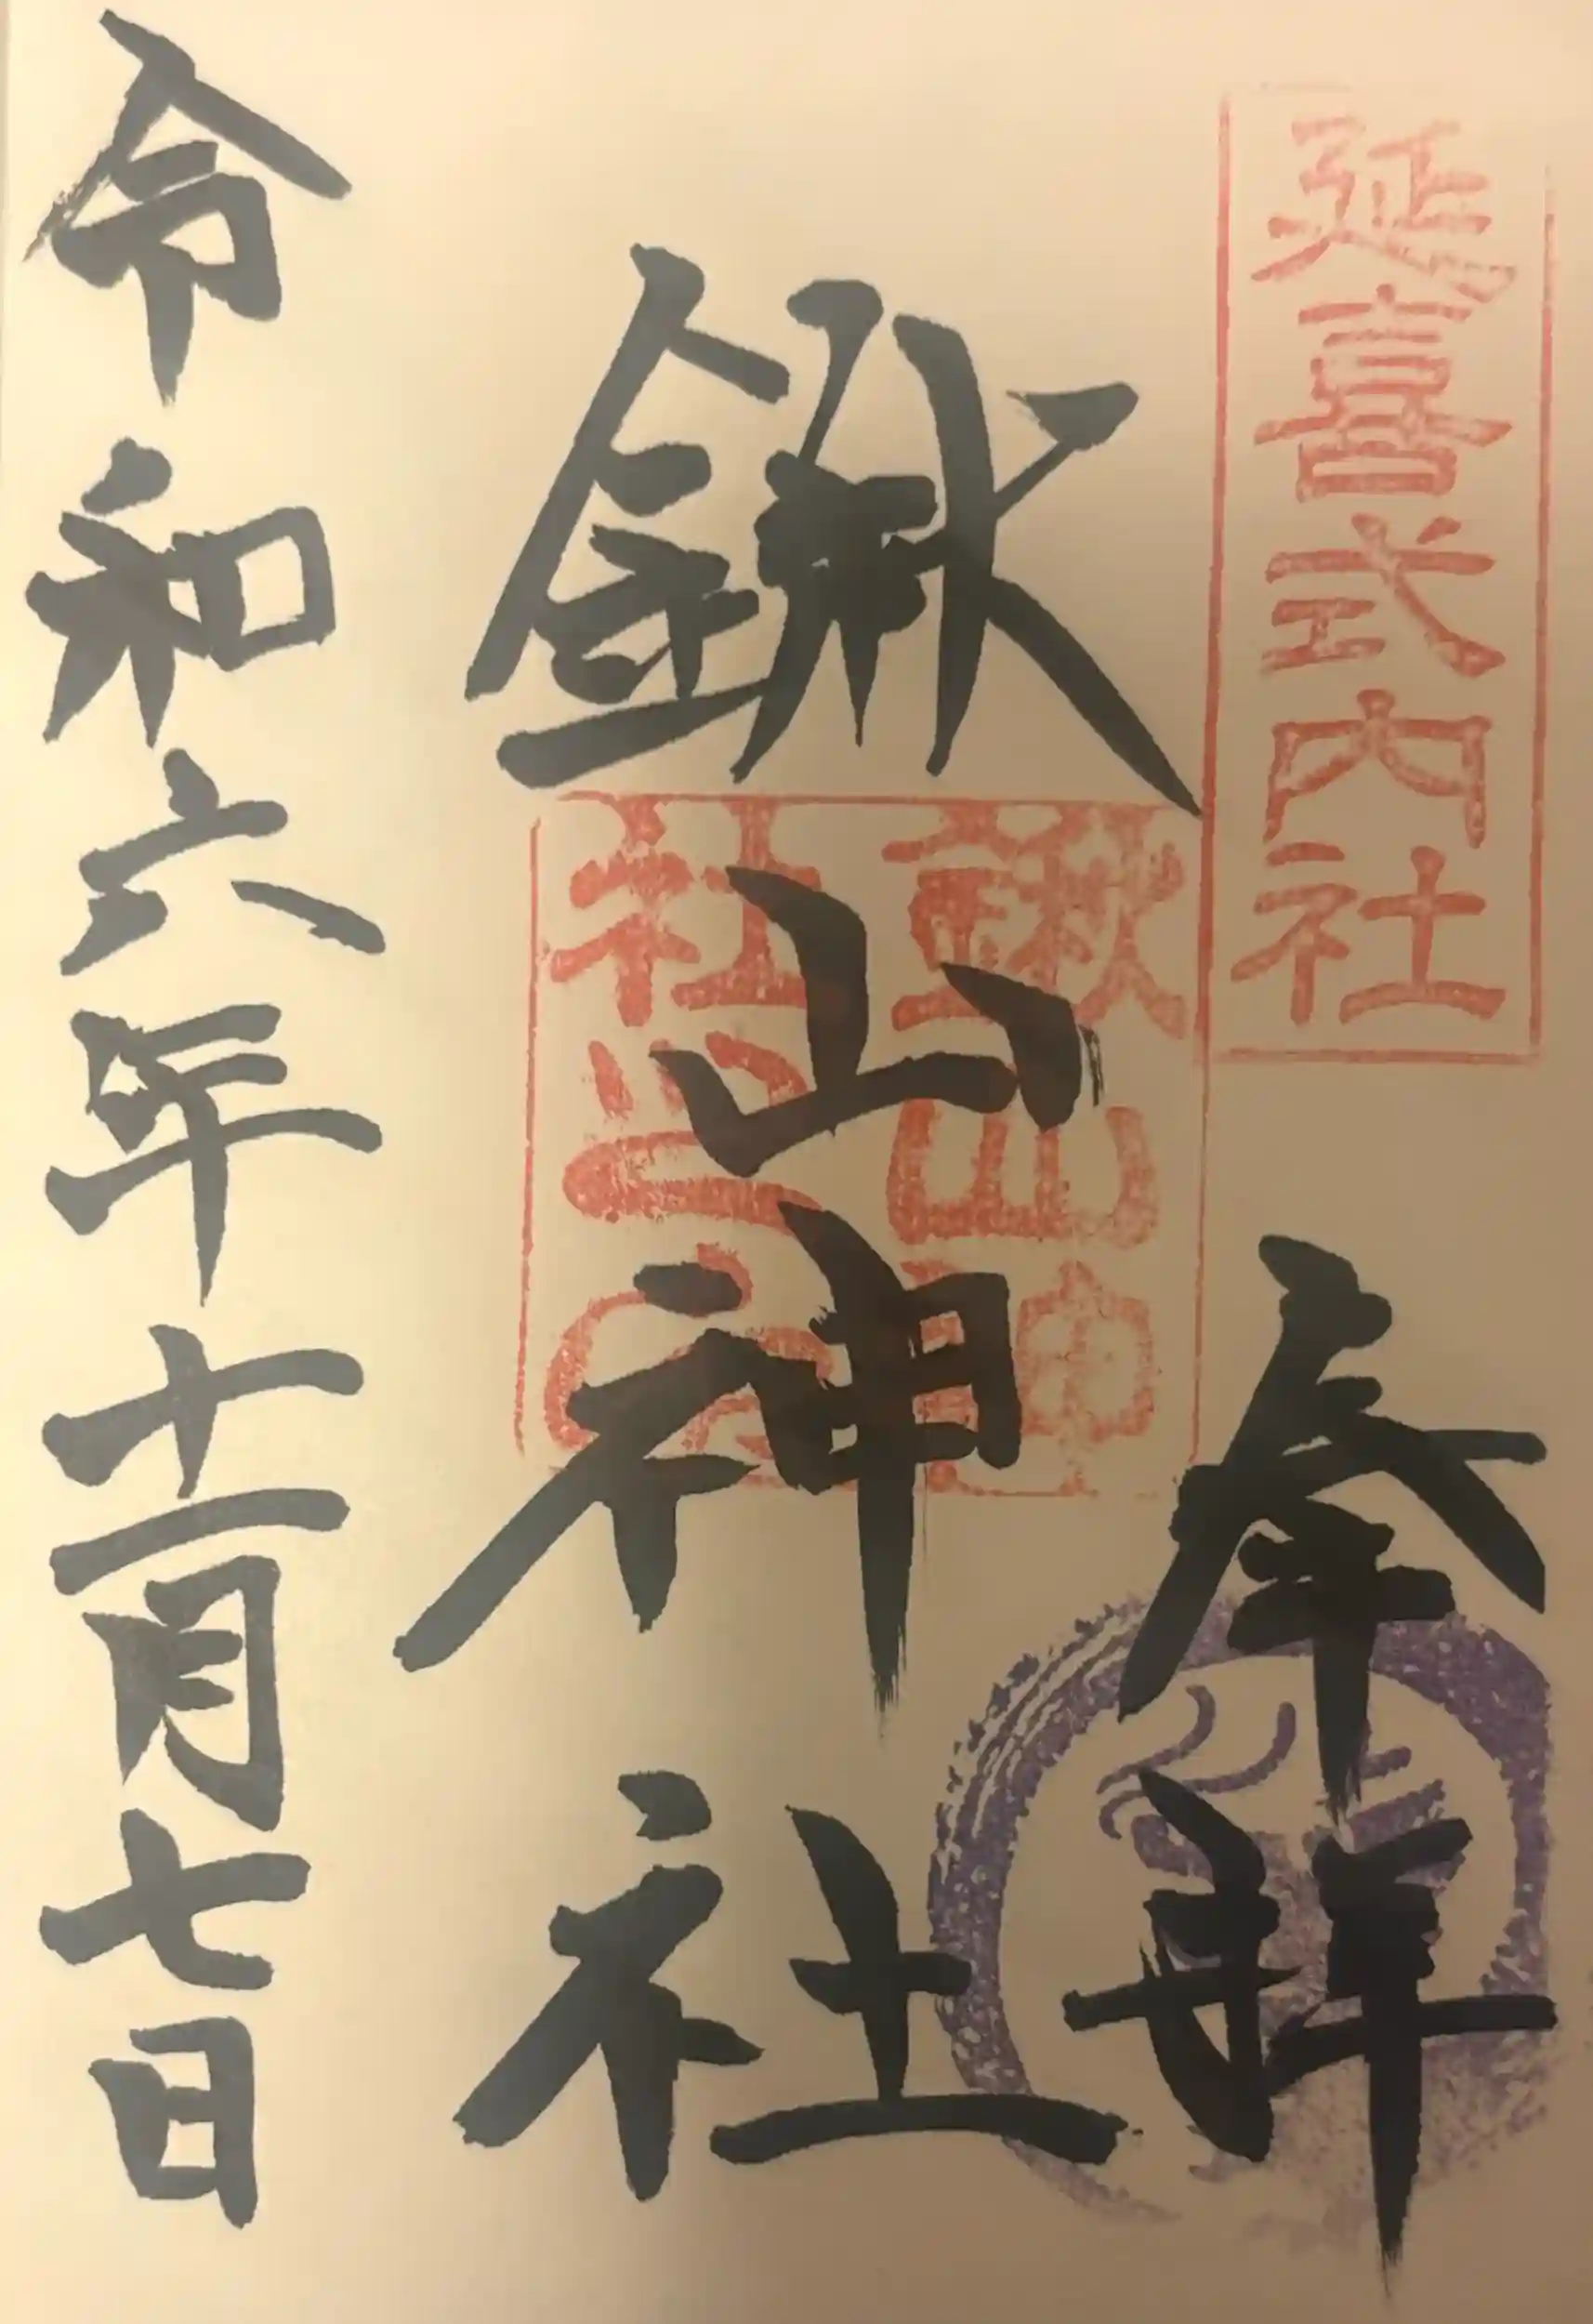 延喜式内社
奉拝
鍬山神社
鍬山神社之印
令和六年十一月七日